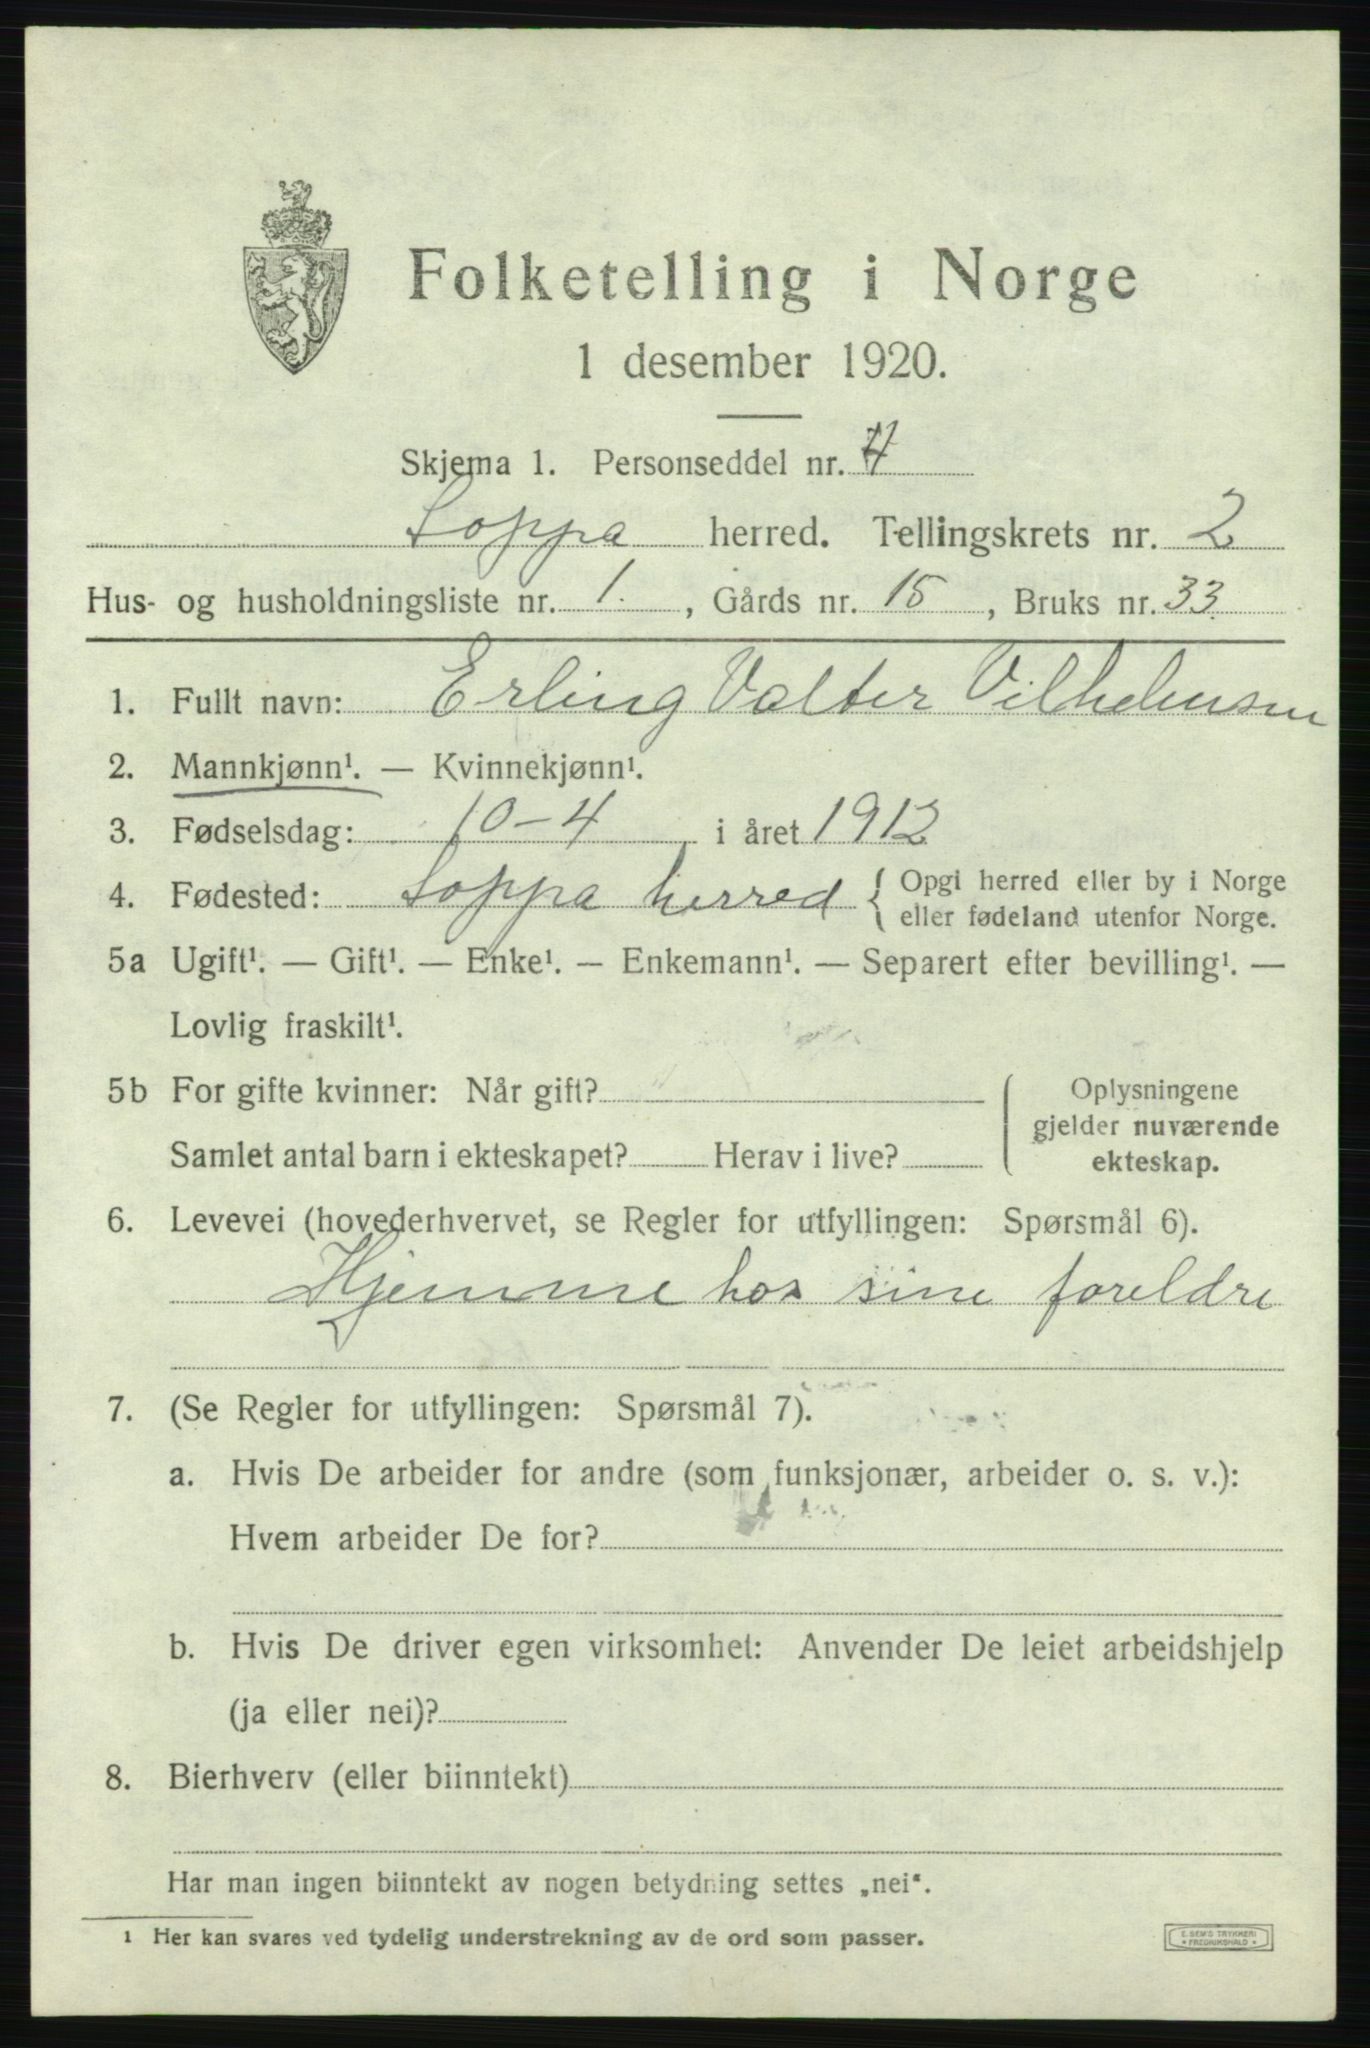 Folketelling i Norge
1 desember 1920.
Skjema 1. Personseddel nr. 4
Loppa herred. Tellingskrets nr. 2
Hus- og husholdningsliste nr. 1. , Gårds nr. 15 , Bruks nr. 33
1. Fullt navn: Erling Valter Vilhelmsen
2. Mannkjønn¹. — Kvinnekjønn¹.
3. Fødselsdag: 10-4 i året 1912
4. Fødested: Loppa herred { Opgi herred eller by i Norge
eller fødeland utenfor Norge.
5a Ugift¹. — Gift¹. — Enke¹. — Enkemann¹. — Separert efter bevilling¹. —
Lovlig fraskilt¹.
5b For gifte kvinner: Når gift? Oplysningene
gjelder nuværende
Samlet antal barn i ekteskapet? Herav i live? ekteskap.
6. Levevei (hovederhvervet, se Regler for utfyllingen: Spørsmål 6).
Hjemme hos sine foreldre
7. (Se Regler for utfyllingen: Spørsmål 7).
a. Hvis De arbeider for andre (som funksjonær, arbeider o. s. v.):
Hvem arbeider De for?
b. Hvis De driver egen virksomhet: Anvender De leiet arbeidshjelp
(ja eller nei)?
8. Bierhverv (eller biinntekt)
Har man ingen biinntekt av nogen betydning settes „nei“.
¹ Her kan svares ved tydelig understrekning av de ord som passer.
E. SEM'S TRYKKERI
* FREDRIKSHALD *